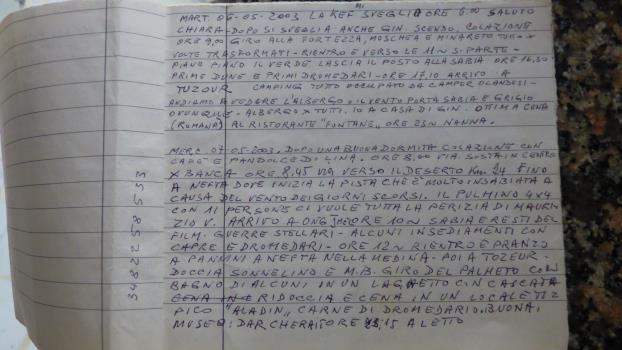 MART. 06-05-2003 LA KEF SVEGLIA ORE 6,00 SALUTO
CHIARA-DOPO SI SVEGLIA ANCHE GIN. SCENDO, COLAZIONE
ORE 9,00 GIRO ALLA FORTEZZA, MOSCHEA E MINARETO
VOLTE TRASFORMATI-RIENTRO E VERSO LE 11~ SI PARTE-
PIANO PIANO IL VERDE LASCIA IL POSTO ALLA SABIA ORE 16,30
PRIME DUNE E PRIMI DROMEDARI-ORE 17,10 ARRIVO A
TUZOUR CAMPING TUTTO OCCUPATO DA CAMPER OLANDESI-
ANDIAMO A VEDERE L'ALBERGO. IL VENTO PORTA SABIA E GRIGIO
OVUNQUE. ALBERGO X TUTTI. IO A CASA DI GIN. OTTIMA CENA
(ROMANA) AL RISTORANTE "FONTANE" ORE 23~ NANNA.
MERC. 07-05-2003. DOPO UNA BUONA DORMITA COLAZIONE CON
CAFE E PANDOLCE DI LINA. ORE 8,00 VIA. SOSTA IN CENTRO
X BANCA ORE 8,45 VIA VERSO IL DESERTO Km. 24 FINO
A NEFTA DOVE INIZIA LA PISTA CHE È MOLTO INSABIATA A
CAUSA DEL VENTO DEI GIORNI SCORSI. IL PULMINO 4x4
CON 11 PERSONE CI VUOLE TUTTA LA PERIZIA DI MAURI-
ZIO V. ARRIVO A ONG JMEL ORE 10~ SABIA E RESTI DEL
FILM. GUERRE STELLARI-ALCUNI INSEDIAMENTI CON
CAPRE E DROMEDARI-ORE 12~ RIENTRO E PRANZO
A PANINI A NEFTA NELLA MEDINA-POI A TOZEUR-
DOCCIA SONNELINO E M.B. GIRO DEL PALMETO CON
BAGNO DI ALCUNI IN UN LAGHETTO CON CASCATA
CENA IN RIDOCCIA E CENA IN UN LOCALE TI-
PICO "ALADIN" CARNE DI DROMEDARIO. BUONA.
MUSEO: DAR CHERAIT ORE 23,15 A LETTO